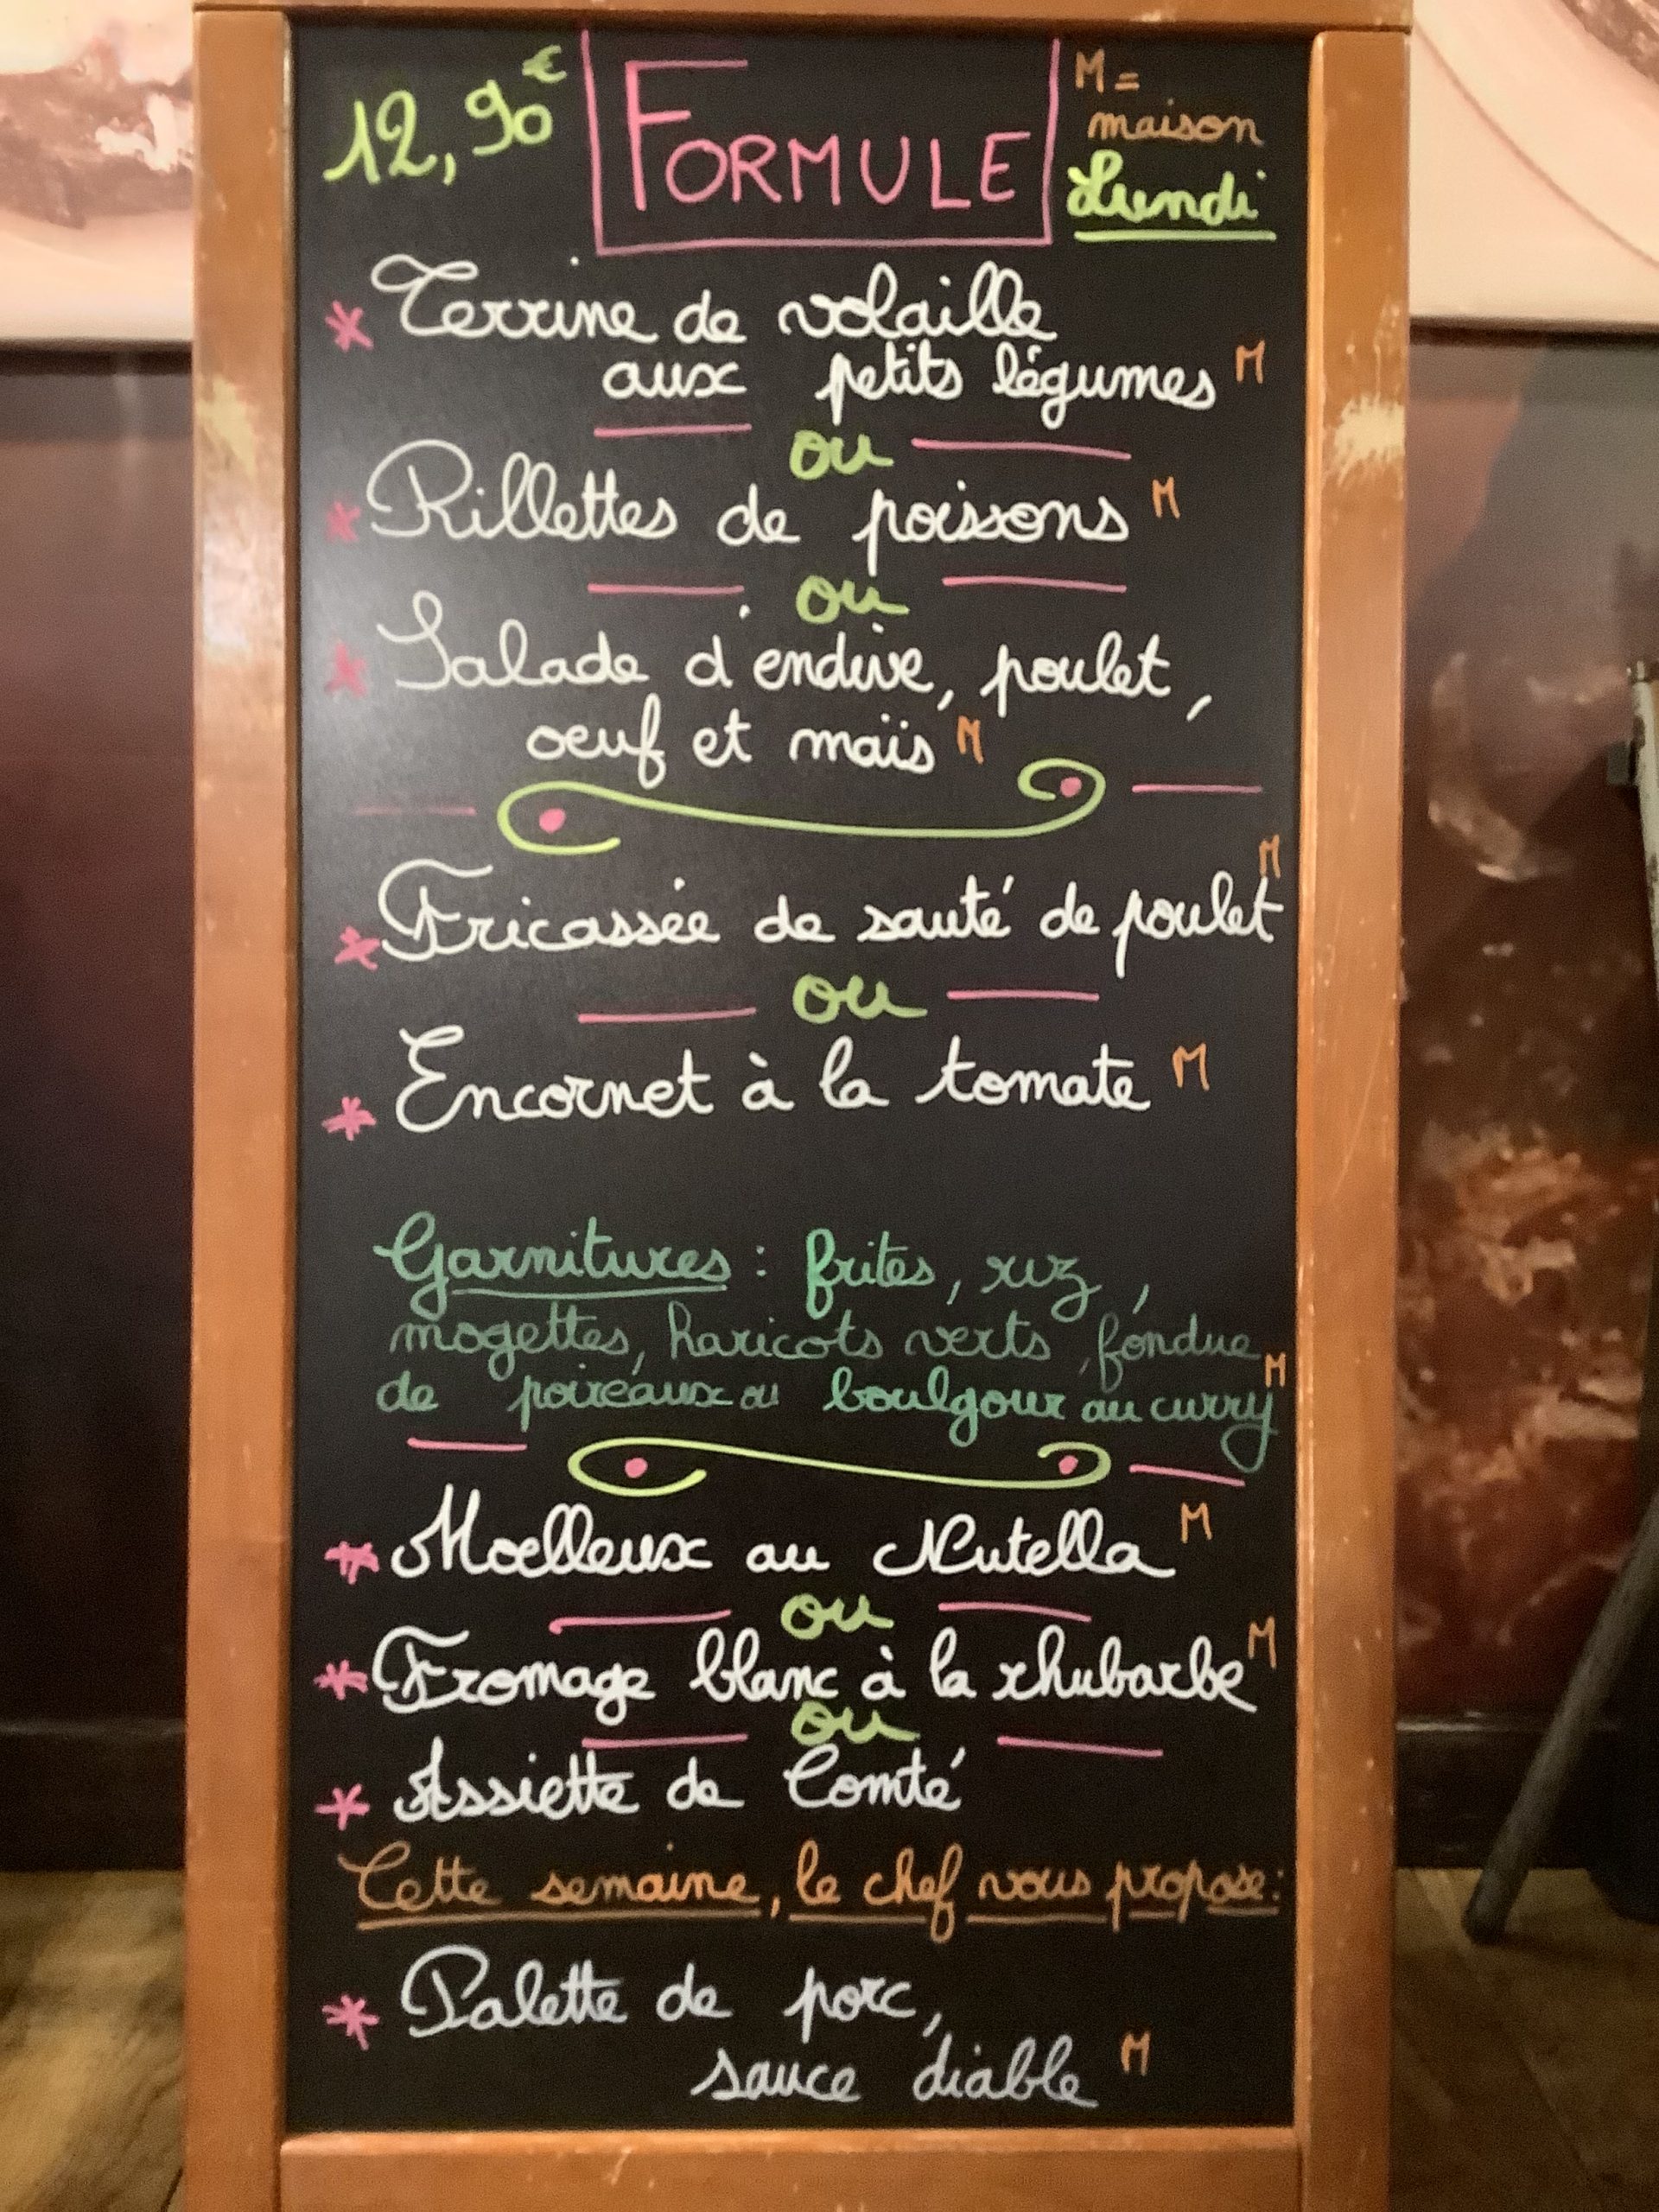 12,90€ FORMULE M =
maison
Lundi
* Terrine de volaille
aux petits légumes M
ou
* Rillettes de poissons M
ou
* Salade d'endive, poulet,
oeuf et maïs M
* Fricassée de sauté de poulet M
ou
* Encornet à la tomate M
Garnitures : frites, riz,
mogettes, haricots verts, fondue
de poireaux ou boulgour au curry M
* Moelleux au Nutella M
ou
* Fromage blanc à la rhubarbe M
ou
* Assiette de Comté
Cette semaine, le chef vous propose:
* Palette de porc,
sauce diable M